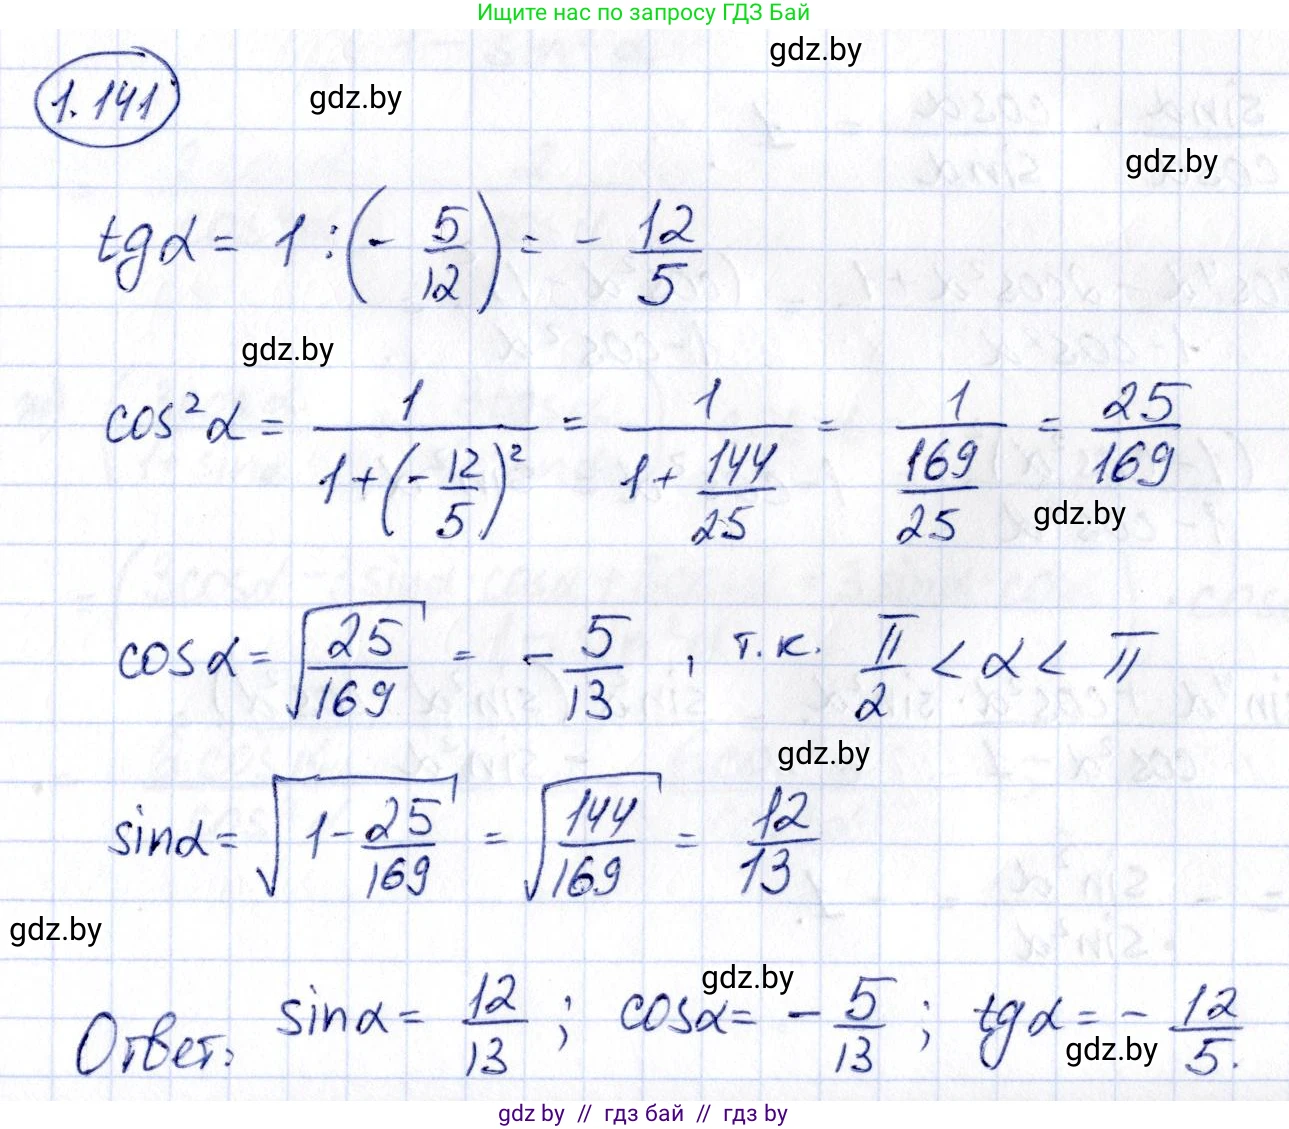 Ищите нас по запросу ГДЗ Бай
gdz.by
1.141
gdz.by
gdz.by
tgα = 1 : (- 5/12) = - 12/5
gdz.by
cos²α = 1/(1+(-12/5)²) = 1/(1+144/25) = 1/(169/25) = 25/169
gdz.by
cosα = √(25/169) = - 5/13 , т.к. π/2 < α < π
gdz.by
sinα = √(1-25/169) = √(144/169) = 12/13
gdz.by
gdz.by
Ответ: sinα = 12/13 ; cosα = - 5/13 ; tgα = - 12/5.
gdz.by
gdz by // гдз бай // гдз by